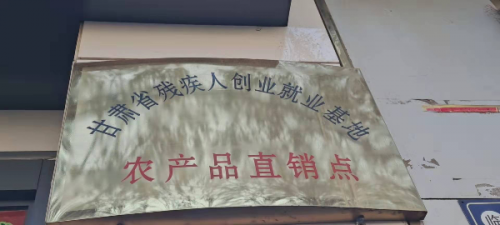 甘肃省残疾人创业就业基地
农产品直销点
临